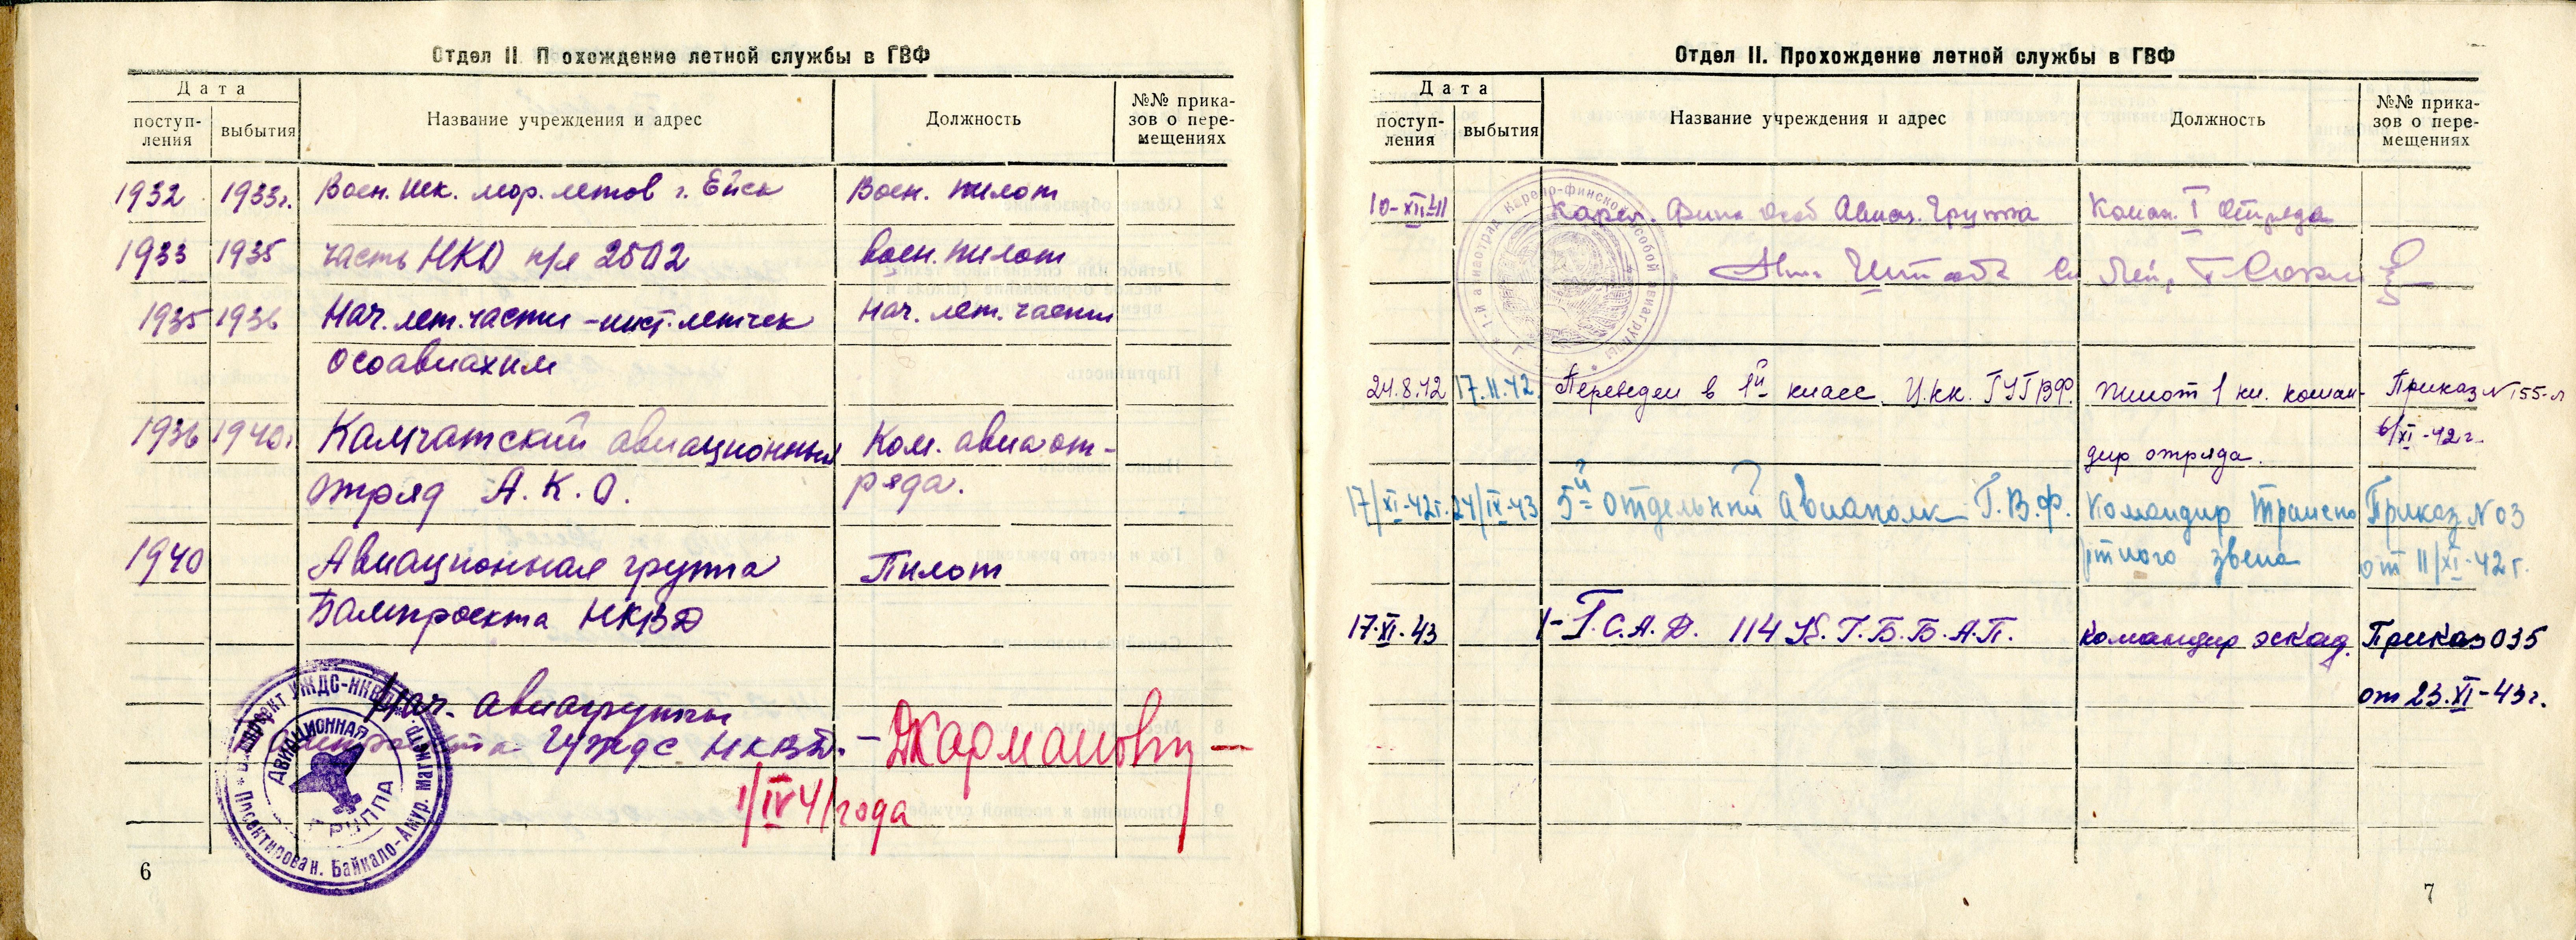 Отдел II П охождение летной службы в ГВФ
Дата
Название учреждения и адрес
Должность
№№ прика-
зов о пере-
мещениях
поступ-
ления
выбытия
1932 1933г. Воен. шк. мор. летов г. Ейск Воен. пилот
1933 1935 часть НКО п/я 2502 воен. пилот
1935 1936 Нач. лет. части - инст. летчик Нач. лет. части
Осоавиахим
1936 1940г. Камчатский авиационный Ком. авиаот-
отряд А. К. О. ряда.
1940 Авиационная группа Пилот
Бампроекта НКВД
Нач. авиагруппы
ГУЖДС НКВД. -
1/IV 41 года
УЖДС-НКВД
АВИАЦИОННАЯ
ГРУППА
Проектирован. Байкало-Амур. магистр.
6
Отдел II. Прохождение летной службы в ГВФ
Дата
Название учреждения и адрес
Должность
№№ прика-
зов о пере-
мещениях
поступ-
ления
выбытия
10-XII-41 Карел. Финс Особ Авиац. Группа Коман. I Отряда
Нач. Штаба
1-й авиаотряд Карело-финской особой авиагруппы
24.8.42 17.11.42 Переведен в 1й класс Ц.кк. ГУГВФ. Пилот 1 кл. коман- Приказ N 155-л
6/XI-42г.
дир отряда.
17/XI-42г. 24/IX-43 5й отдельный Авиаполк Г.В.Ф. Командир Транспо Приказ N 03
ртного звена от 11/XI-42г.
17.XI-43 1-Г.С.А.Д. 114 К.Г.Б.Б.А.П. командир эскад. Приказ 035
от 23.XI-43г.
7